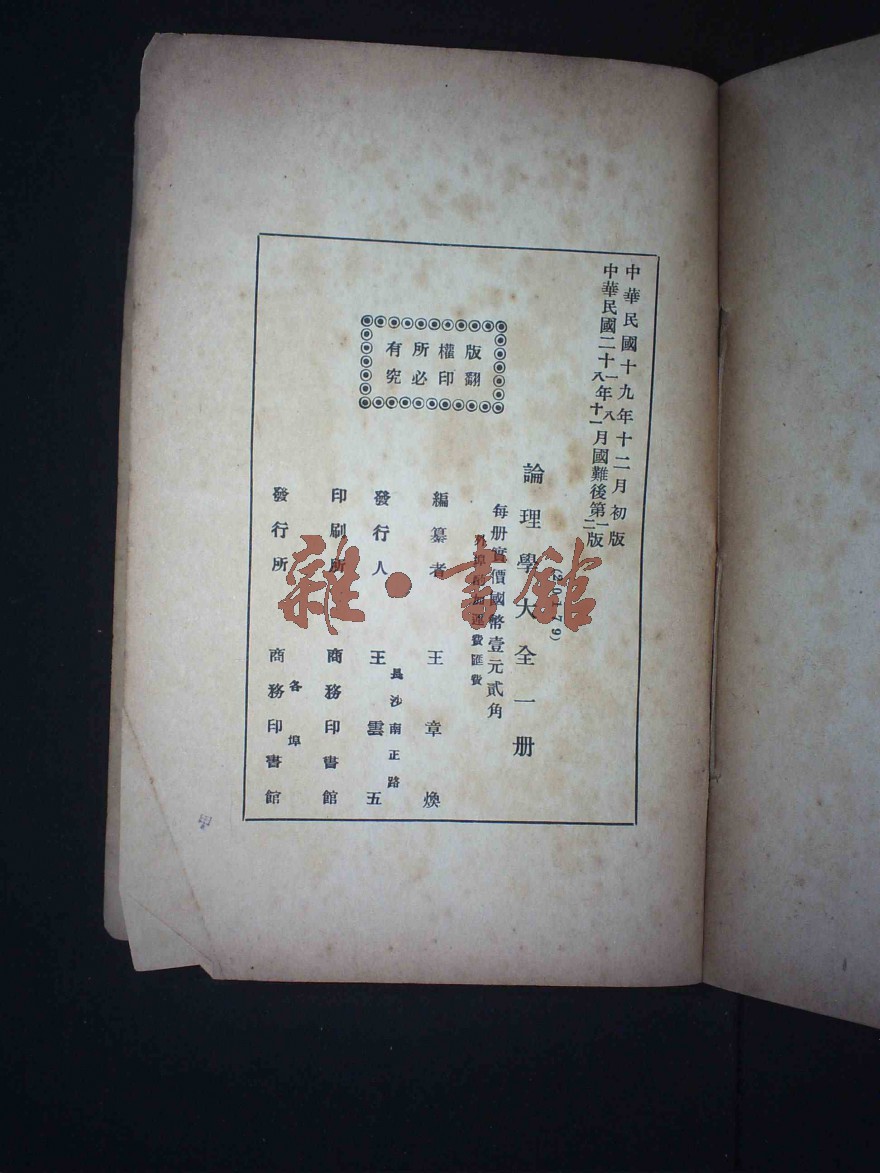 中華民國十九年十二月初版
中華民國二十一八年八十一月國難後第一二版
(20179)
論理學大全一册
每册實價國幣壹元貳角
外埠酌加運費匯費
編纂者 王章煥
長沙南正路
發行人 王雲五
印刷所 商務印書館
各埠
發行所 商務印書館
版權所有
翻印必究
雜·書館